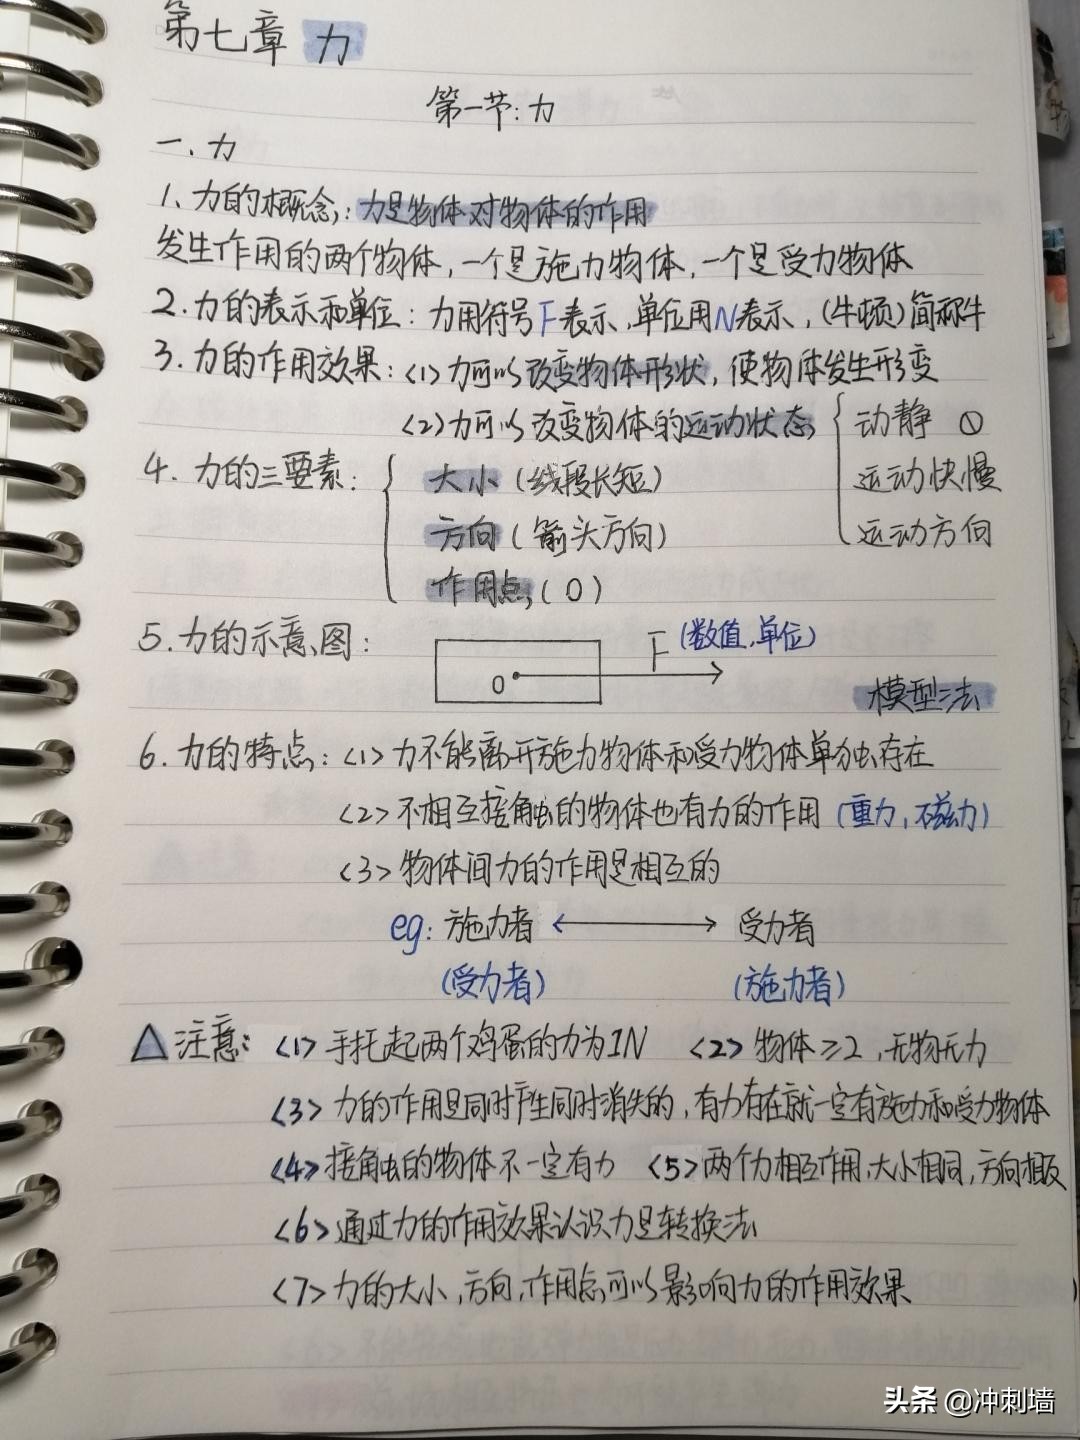 第七章 力
第一节:力
一.力
1、力的概念:力是物体对物体的作用
发生作用的两个物体,一个是施力物体,一个是受力物体
2.力的表示和单位:力用符号F表示,单位用N表示,(牛顿)简称牛
3.力的作用效果:<1>力可以改变物体形状,使物体发生形变
<2>力可以改变物体的运动状态 动静 ①
运动快慢
运动方向
4.力的三要素: 大小(线段长短)
方向(箭头方向)
作用点(O)
5.力的示意图: O F (数值,单位)
模型法
6.力的特点:<1>力不能离开施力物体和受力物体单独存在
<2>不相互接触的物体也有力的作用(重力,磁力)
<3>物体间力的作用是相互的
eg:施力者 受力者
(受力者) (施力者)
△注意: <1>手托起两个鸡蛋的力为1N <2>物体≥2,无物无力
<3>力的作用是同时产生同时消失的,有力存在就一定有施力和受力物体
<4>接触的物体不一定有力 <5>两个力相互作用,大小相同,方向相反
<6>通过力的作用效果认识力是转换法
<7>力的大小,方向,作用点可以影响力的作用效果
头条 @冲刺墙